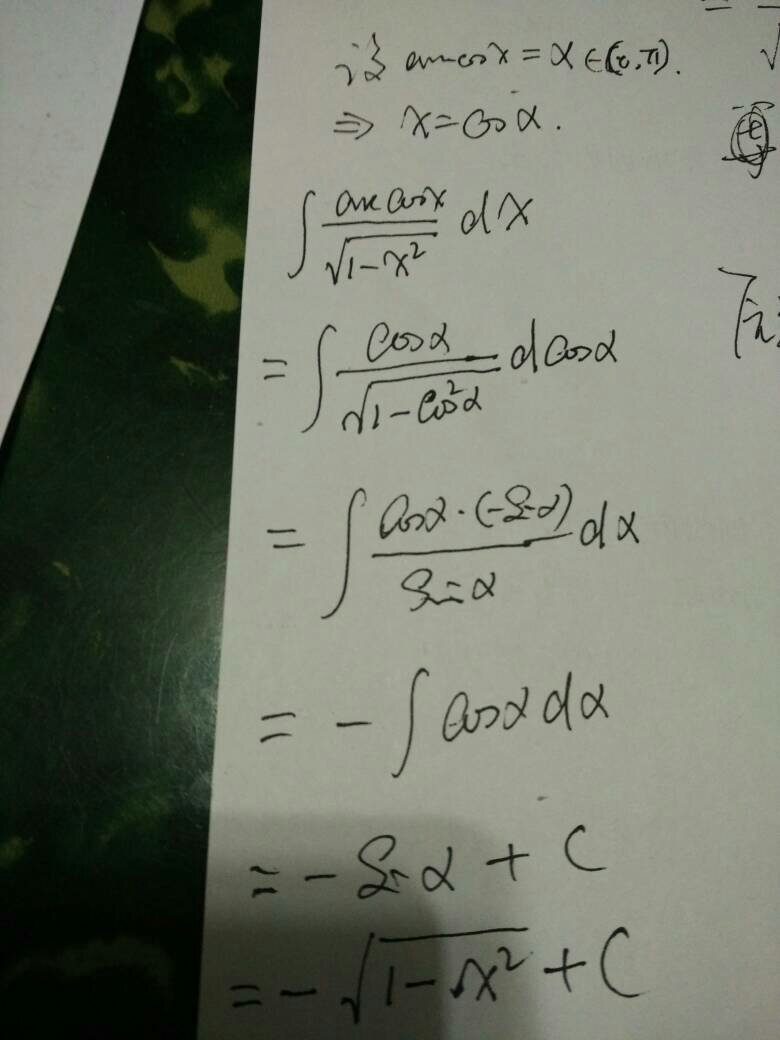 设 arccosx = α ∈ (0, π).
⇒ x = cosα.
∫ arc cosx / √(1-x²) dx
= ∫ cosα / √(1-cos²α) d cosα
= ∫ cosα·(-sinα) / sinα dα
= - ∫ cosα dα
= - sinα + C
= - √(1-x²) + C